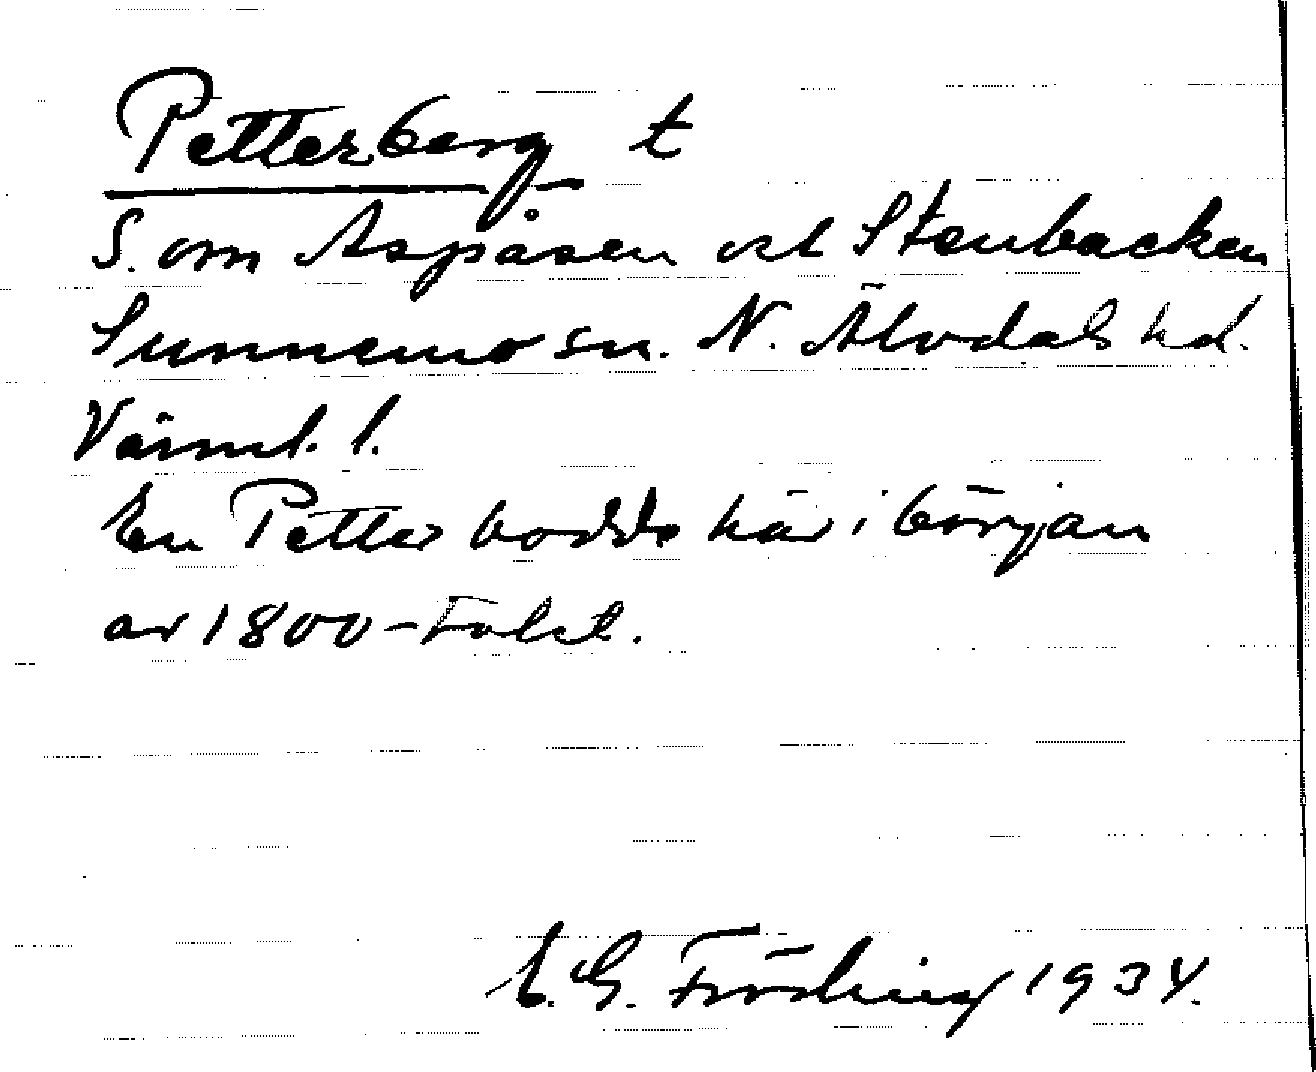 Petterberg t
S. om Aspåsen vel Stenbacken
Sunnemo sn. N. Älvdals hd.
Värml. l.
En Petter bodde här i början
av 1800-talet.
E. G. Fröding 1934.